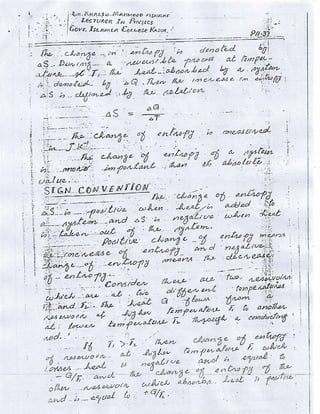 LECTURER IN PHYSICS
GOVT. ISLAMIA COLLEGE KASUR.
PH-37
The change in entropy is denoted by
ΔS. During a reversible process at temper-
ature of T, the heat absorbed by a system
is denoted by ΔQ. Then the increase in entropy
ΔS is defined by the relation
ΔS = ΔQ / ΔT
The change of entropy is measured
in J K⁻¹
The change of entropy of a system
is more important than its absolute
value.
SIGN CONVENTION
The change of entropy
ΔS is positive when heat is added to
a system and ΔS is negative when heat
is taken out of the system.
Positive change of entropy means
the increase of entropy and negative
change of entropy means the decrease
of entropy.
Consider there are two reservoirs
which are at two different temperatures
T₁ and T₂. The heat Q flows from a
reservoir at higher temperature T₁ to another
at lower temperature T₂ through a conducting
rod.
If T₁ > T₂ then change of entropy
of reservoir at higher temperature T₁ which
losses heat is negative and is equal to
-Q/T₁ and the change of entropy of the
other reservoir which absorbs heat is positive
and is equal to +Q/T₂